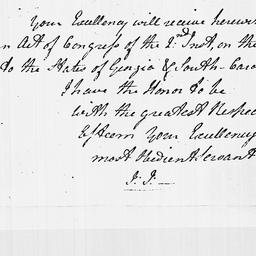 Your Excellency will receive herewith
an Act of Congress of the 2nd Inst, on the
to the States of Georgia & South-Caro
I have the Honor to be
with the greatest Respec
Esteem Your Excellency
most Obedient Servant
J. J.